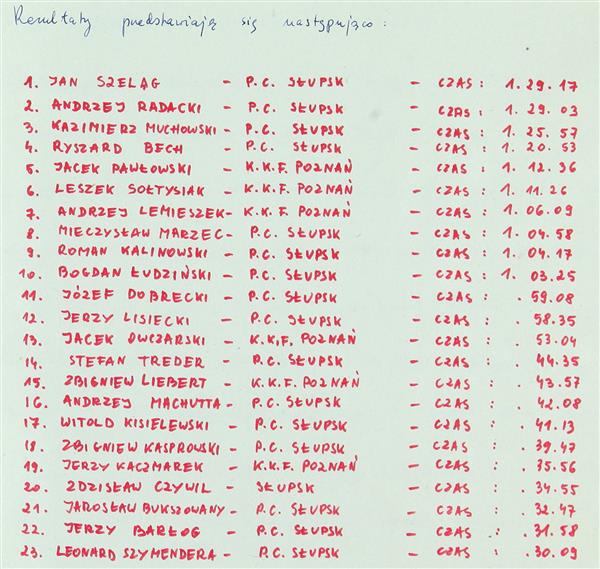 Rezultaty przedstawiają się następująco:
1. JAN SZELĄG - P.C. SŁUPSK - CZAS: 1.29.17
2. ANDRZEJ RADACKI - P.C. SŁUPSK - CZAS: 1.29.03
3. KAZIMIERZ MUCHOWSKI - P.C. SŁUPSK - CZAS: 1.25.57
4. RYSZARD BECH - P.C. SŁUPSK - CZAS: 1.20.53
5. JACEK PAWŁOWSKI - K.K.F. POZNAŃ - CZAS: 1.12.36
6. LESZEK SOŁTYSIAK - K.K.F. POZNAŃ - CZAS: 1.11.26
7. ANDRZEJ LEMIESZEK - K.K.F. POZNAŃ - CZAS: 1.06.09
8. MIECZYSŁAW MARZEC - P.C. SŁUPSK - CZAS: 1.04.58
9. ROMAN KALINOWSKI - P.C. SŁUPSK - CZAS: 1.04.17
10. BOGDAN ŁUDZIŃSKI - P.C. SŁUPSK - CZAS: 1.03.25
11. JÓZEF DOBRECKI - P.C. SŁUPSK - CZAS: .59.08
12. JERZY LISIECKI - P.C. SŁUPSK - CZAS: .58.35
13. JACEK OWCZARSKI - K.K.F. POZNAŃ - CZAS: .53.04
14. STEFAN TREDER - P.C. SŁUPSK - CZAS: .44.35
15. ZBIGNIEW LIEBERT - K.K.F. POZNAŃ - CZAS: .43.57
16. ANDRZEJ MACHUTTA - P.C. SŁUPSK - CZAS: .42.08
17. WITOLD KISIELEWSKI - P.C. SŁUPSK - CZAS: .41.13
18. ZBIGNIEW KASPROWSKI - P.C. SŁUPSK - CZAS: .39.47
19. JERZY KACZMAREK - K.K.F. POZNAŃ - CZAS: .35.56
20. ZDZISŁAW CZYWIL - SŁUPSK - CZAS: .34.55
21. JAROSŁAW BUKSZOWANY - P.C. SŁUPSK - CZAS: .32.47
22. JERZY BARŁOG - P.C. SŁUPSK - CZAS: .31.58
23. LEONARD SZYMENDERA - P.C. SŁUPSK - CZAS: .30.09